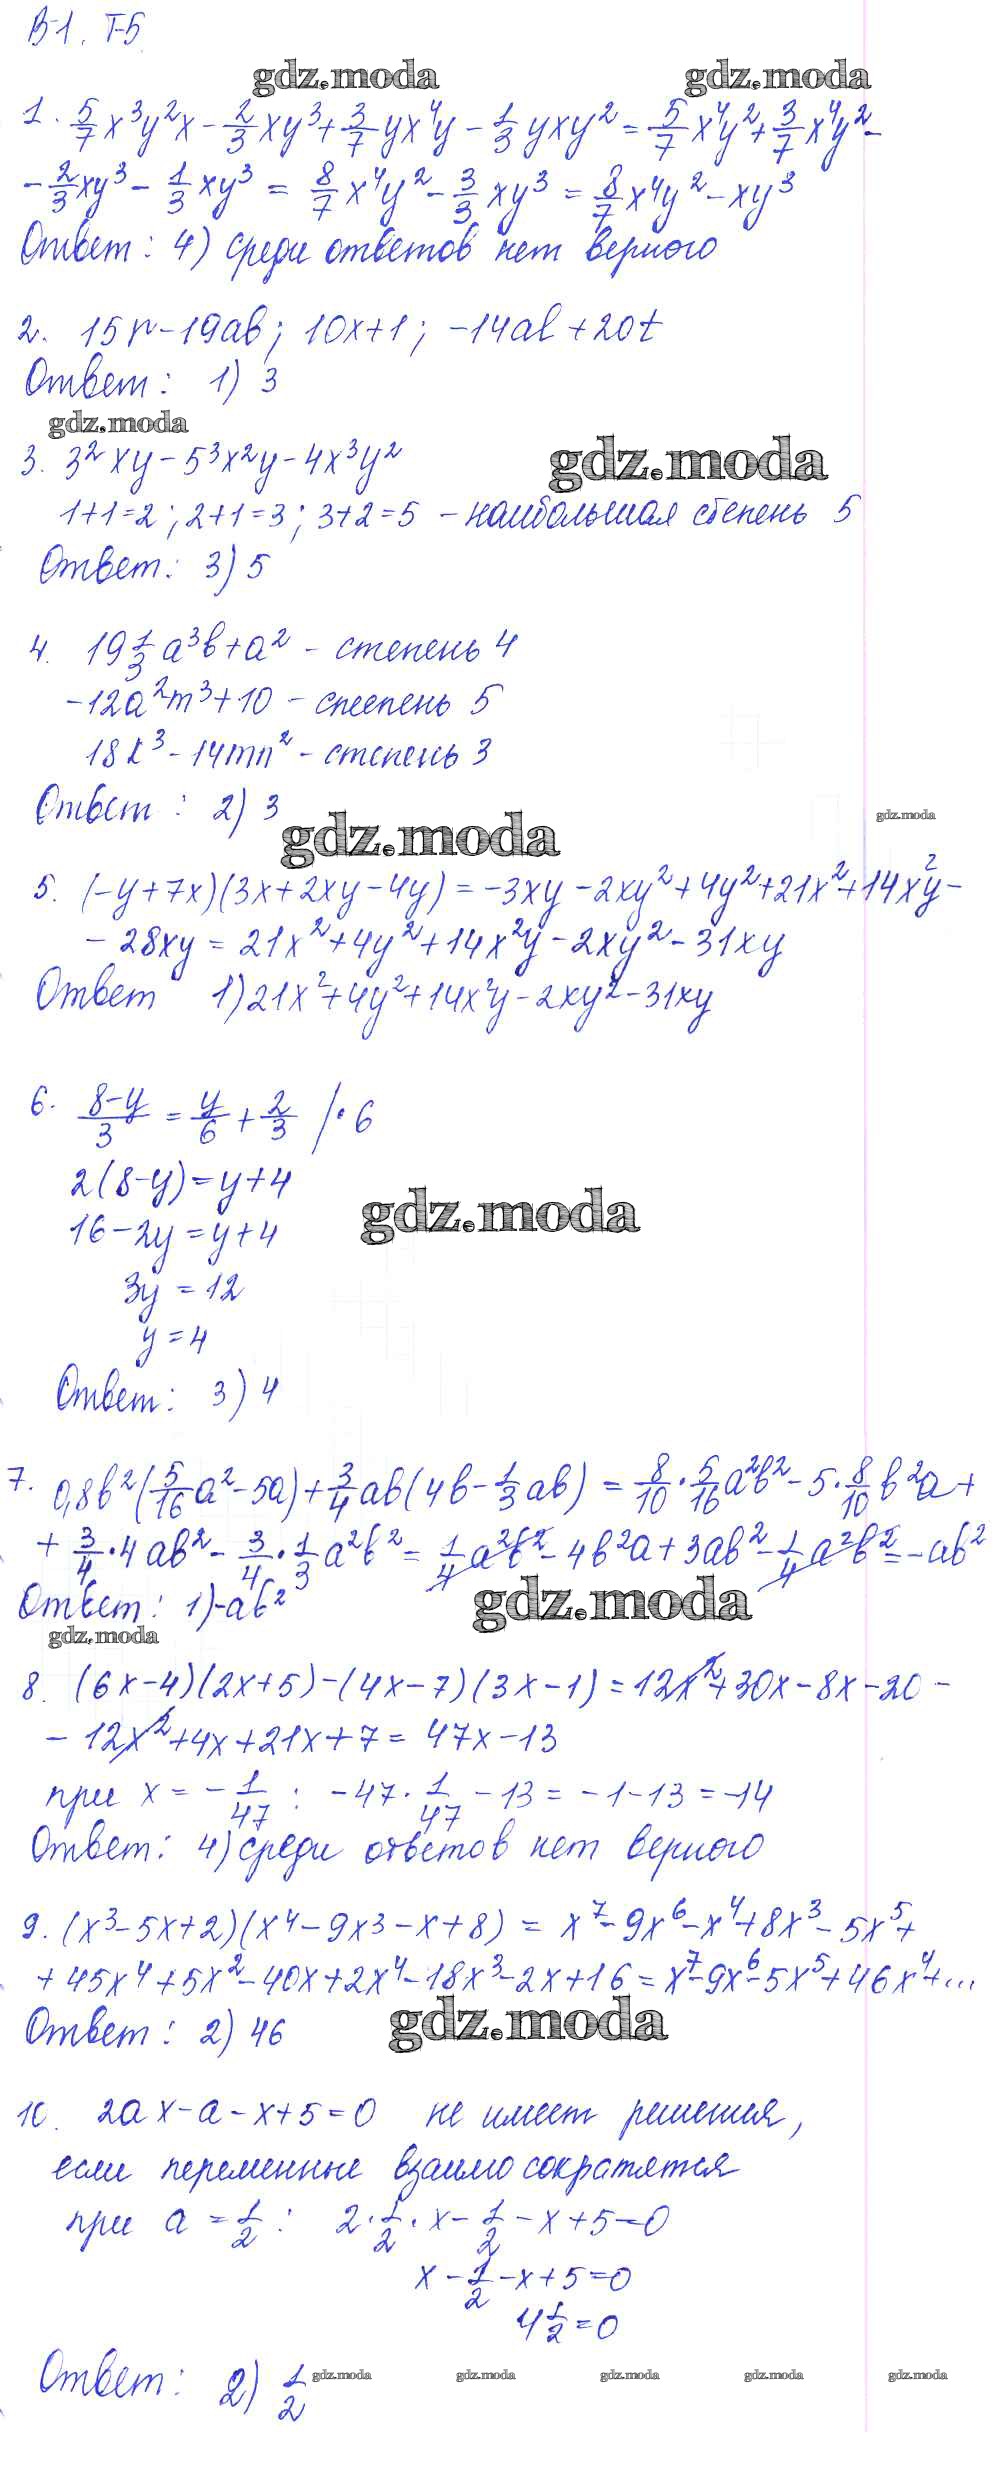 В-1. Т-5
gdz.moda gdz.moda
1. 5/7 x³y²x - 2/3 xy³ + 3/7 yx⁴y - 1/3 yxy² = 5/7 x⁴y² + 3/7 x⁴y² -
- 2/3 xy³ - 1/3 xy³ = 8/7 x⁴y² - 3/3 xy³ = 8/7 x⁴y² - xy³
Ответ: 4) среди ответов нет верного
2. 15n - 19ab; 10x+1; -14ab + 20t
Ответ: 1) 3
gdz.moda
3. 3²xy - 5³x²y - 4x³y²
gdz.moda
1+1=2; 2+1=3; 3+2=5 - наибольшая степень 5
Ответ: 3) 5
4. 19 1/3 a³b + a² - степень 4
-12a²m³ + 10 - степень 5
18k³ - 14mn² - степень 3
Ответ: 2) 3
gdz.moda
gdz.moda
5. (-y+7x)(3x+2xy-4y) = -3xy - 2xy² + 4y² + 21x² + 14x²y -
- 28xy = 21x² + 4y² + 14x²y - 2xy² - 31xy
Ответ 1) 21x² + 4y² + 14x²y - 2xy² - 31xy
6. (8-y)/3 = y/6 + 2/3 /·6
2(8-y) = y+4
16-2y = y+4
gdz.moda
3y = 12
y = 4
Ответ: 3) 4
7. 0,8b²(5/16 a² - 5a) + 3/4 ab(4b - 1/3 ab) = 8/10 · 5/16 a²b² - 5 · 8/10 b²a +
+ 3/4 · 4ab² - 3/4 · 1/3 a²b² = 1/4 a²b² - 4b²a + 3ab² - 1/4 a²b² = -ab²
Ответ: 1) -ab²
gdz.moda
gdz.moda
8. (6x-4)(2x+5)-(4x-7)(3x-1) = 12x² + 30x - 8x - 20 -
- 12x² + 4x + 21x + 7 = 47x - 13
при x = - 1/47 : -47 · 1/47 - 13 = -1-13 = -14
Ответ: 4) среди ответов нет верного
9. (x³-5x+2)(x⁴-9x3-x+8) = x⁷ - 9x⁶ - x⁴ + 8x³ - 5x⁵ +
+ 45x⁴ + 5x² - 40x + 2x⁴ - 18x³ - 2x + 16 = x⁷ - 9x⁶ - 5x⁵ + 46x⁴ + ...
gdz.moda
Ответ: 2) 46
10. 2ax - a - x + 5 = 0 не имеет решения,
если переменные взаимо сократятся
при a = 1/2 : 2 · 1/2 · x - 1/2 - x + 5 = 0
x - 1/2 - x + 5 = 0
4 1/2 = 0
Ответ: 2) 1/2
gdz.moda gdz.moda gdz.moda gdz.moda gdz.moda